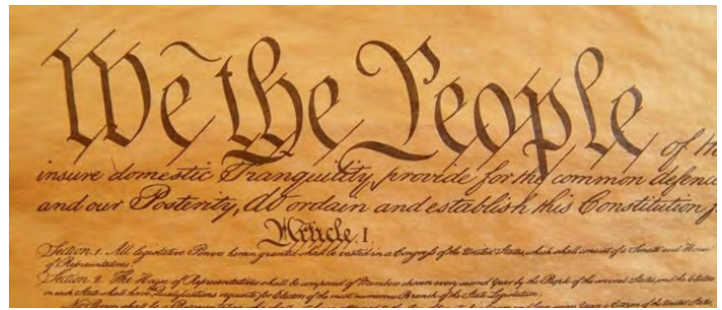 We the People of th
insure domestic Tranquility, provide for the common defence
and our Posterity, do ordain and establish this Constitution f
Article. I.
Section. 1. All legislative Powers herein granted shall be vested in a Congress of the United States, which shall consist of a Senate and House
of Representatives.
Section. 2. The House of Representatives shall be composed of Members chosen every second Year by the People of the several States, and the Electors
in each State shall have the Qualifications requisite for Electors of the most numerous Branch of the State Legislature.
No Person shall be a Representative